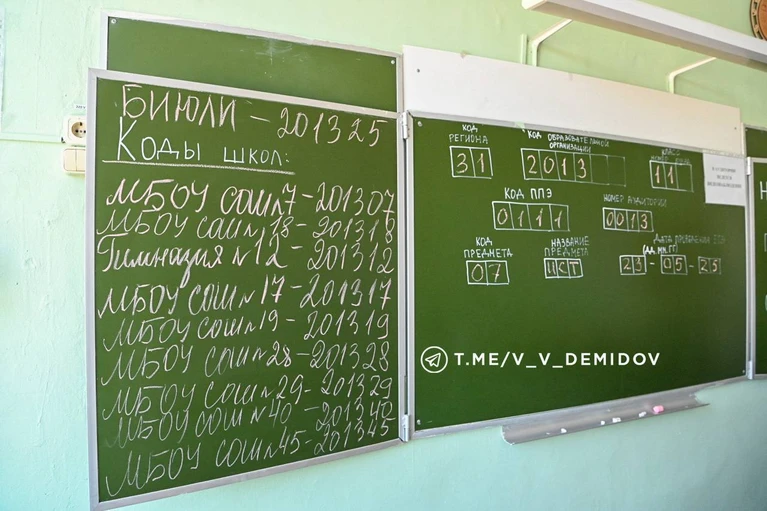 БИЮЛИ - 201325
Коды школ:
МБОУ СОШ №7-201307
МБОУ СОШ №18-201318
Гимназия №12-201312
МБОУ СОШ №17-201317
МБОУ СОШ №19-201319
МБОУ СОШ №28-201328
МБОУ СОШ №29-201329
МБОУ СОШ №40-201340
МБОУ СОШ №45-201345
КОД РЕГИОНА
31
КОД ОБРАЗОВАТЕЛЬНОЙ ОРГАНИЗАЦИИ
2013
КЛАСС
11
КОД ППЭ
0111
НОМЕР АУДИТОРИИ
0013
КОД ПРЕДМЕТА
07
НАЗВАНИЕ ПРЕДМЕТА
ИСТ
ДАТА ПРОВЕДЕНИЯ ЕГЭ
(ДД.ММ.ГГ)
23-05-25
T.ME/V_V_DEMIDOV